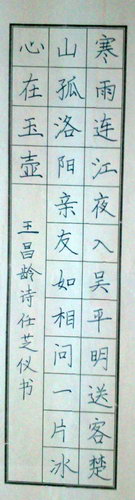 寒雨连江夜入吴平明送客楚
山孤洛阳亲友如相问一片冰
心在玉壶
王昌龄诗任芝仪书